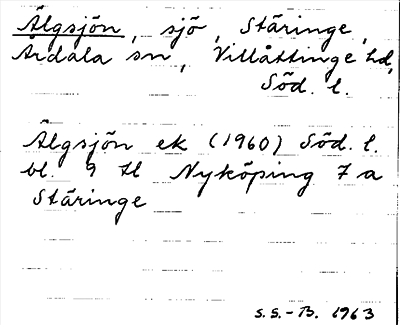 Älgsjön, sjö, Stäringe,
Årdala sn, Villåttinge hd,
Söd. l.
Älgsjön ek (1960) Söd. l.
bl. 9 H Nyköping 7 a
Stäringe
S.S.-B. 1963